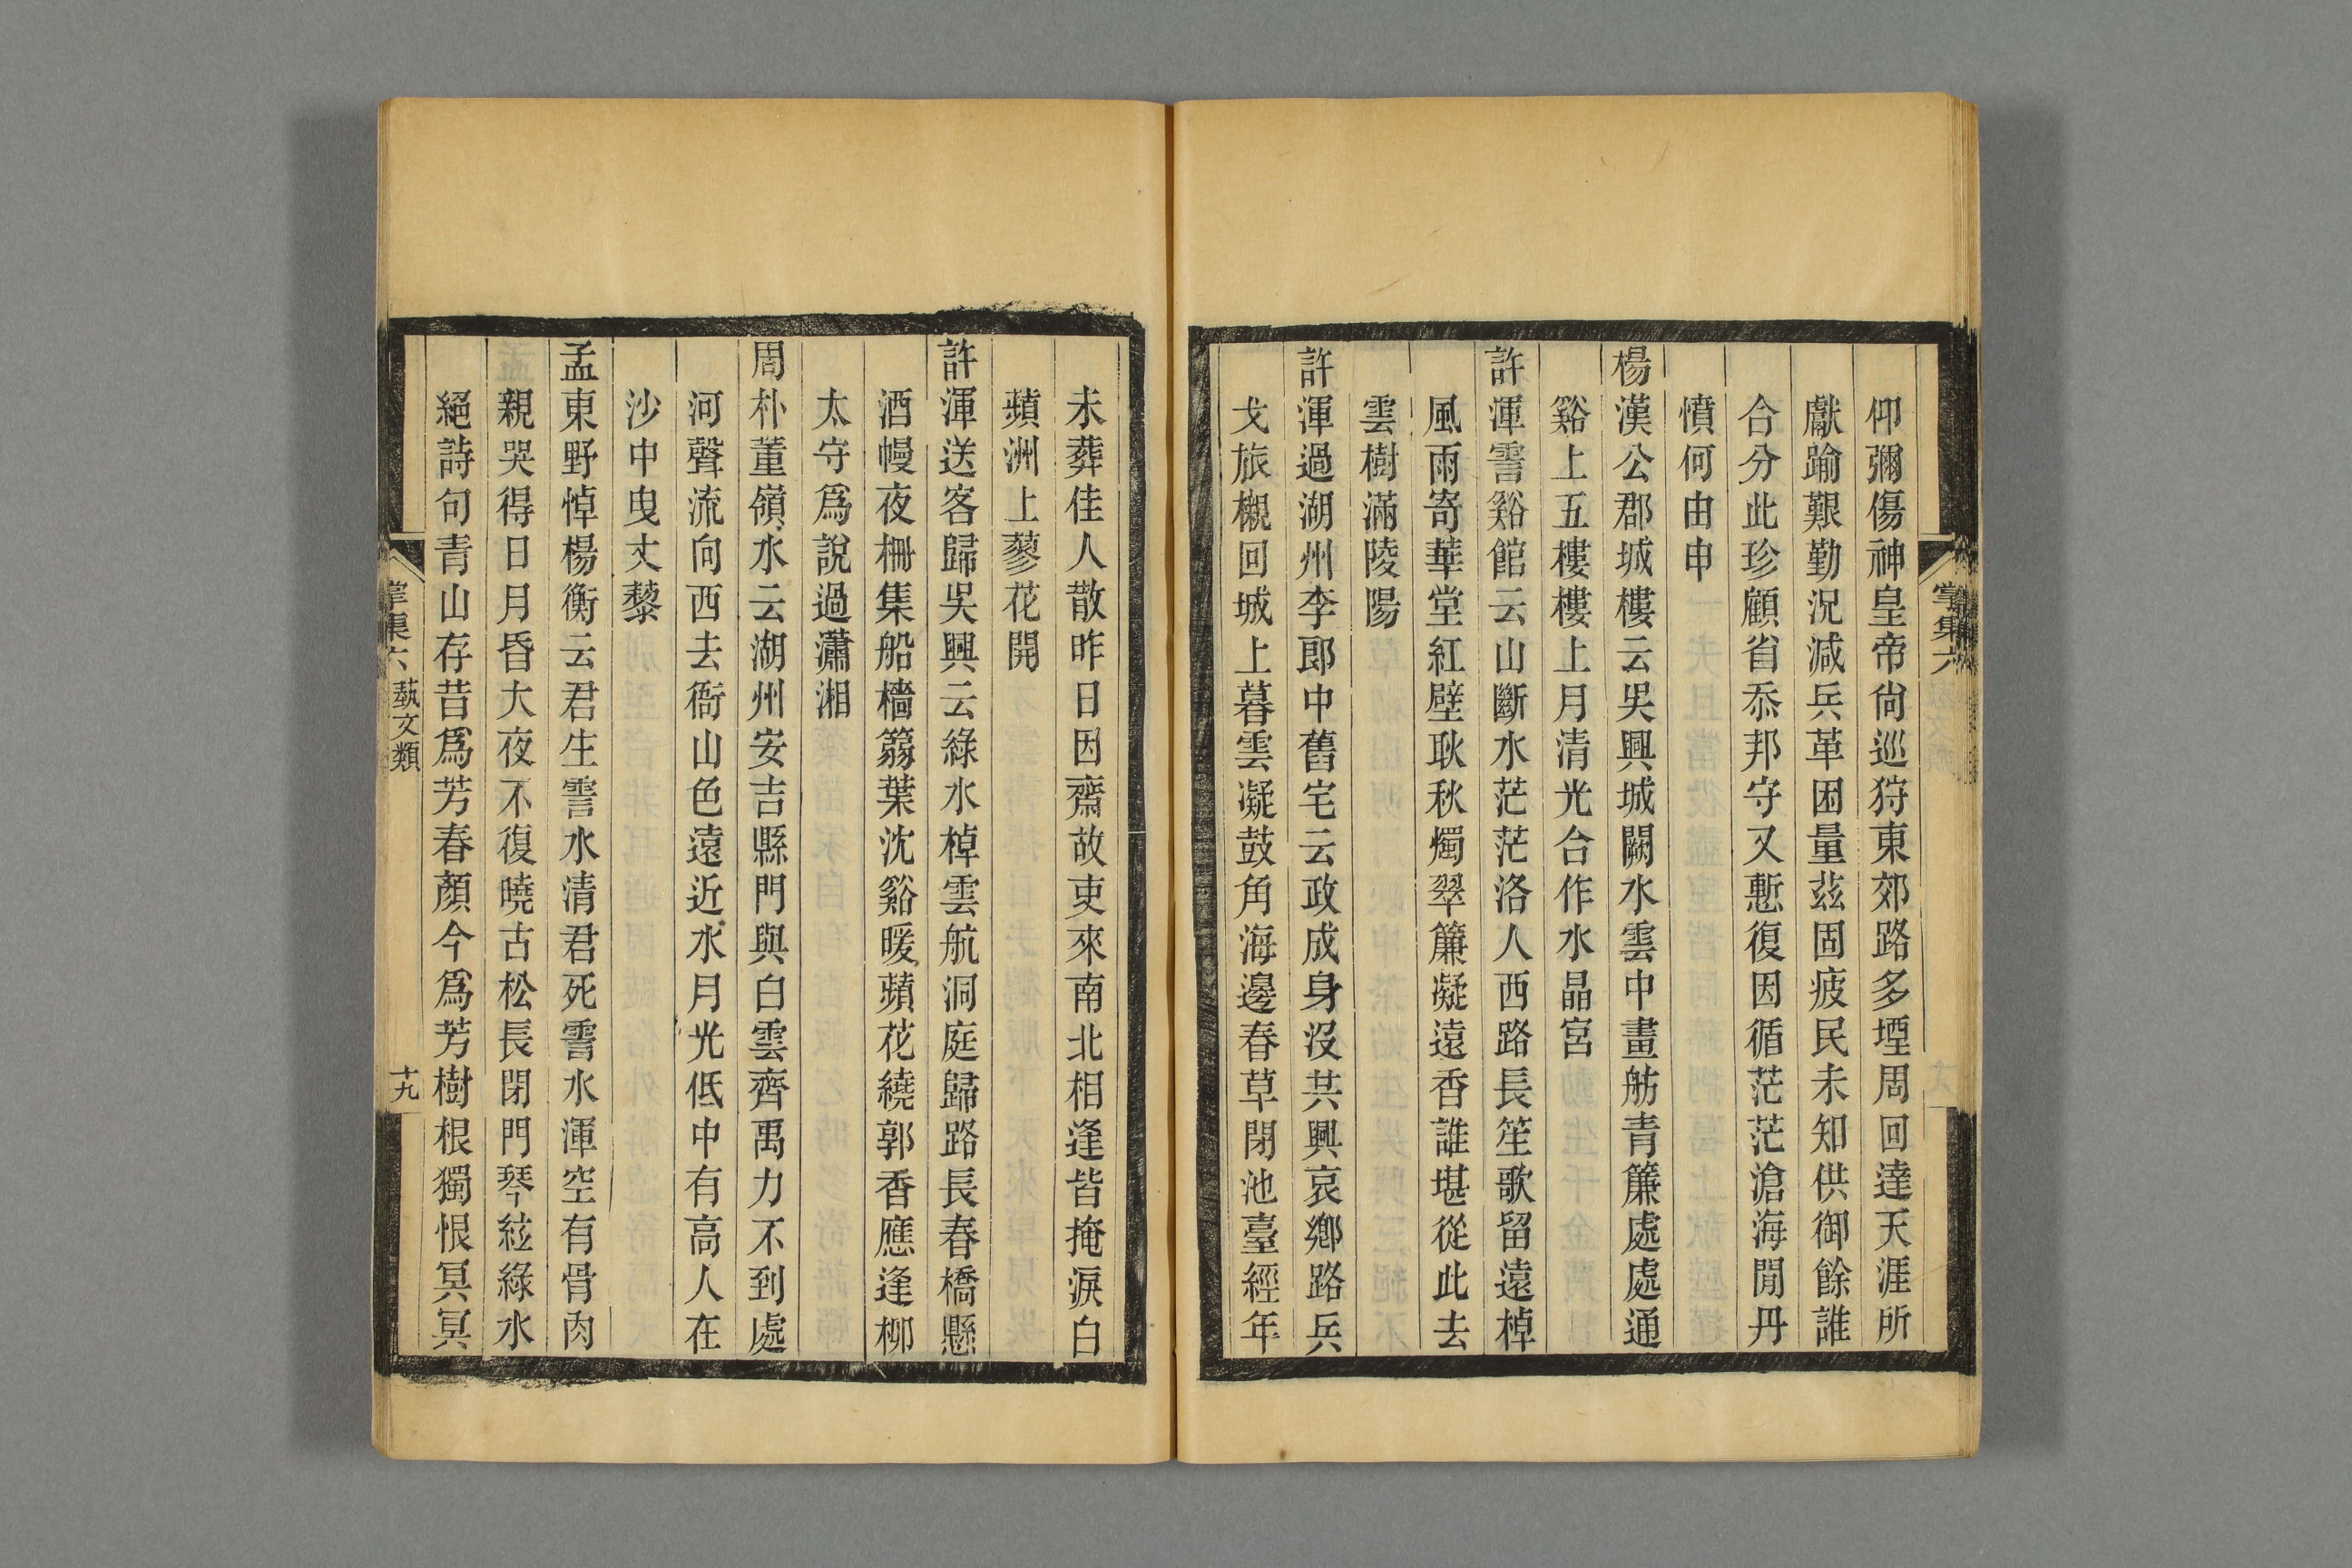 掌集六
仰彌傷神皇帝尙巡狩東郊路多堙周回達天涯所
獻踰艱勤況減兵革困量兹固疲民未知供御餘誰
合分此珍顧省忝邦守又慙復因循茫茫滄海閒丹
憤何由申
楊漢公郡城樓云吳興城闕水雲中畫舫青簾處處通
谿上五樓樓上月清光合作水晶宮
許渾霅谿館云山斷水茫茫洛人西路長笙歌留遠棹
風雨寄華堂紅壁耿秋燭翠簾凝遠香誰堪從此去
雲樹滿陵陽
許渾過湖州李郎中舊宅云政成身沒共興哀鄉路兵
戈旅櫬回城上暮雲凝鼓角海邊春草閉池臺經年
未葬佳人散昨日因齋故吏來南北相逢皆掩淚白
蘋洲上蓼花開
許渾送客歸吳興云綠水棹雲航洞庭歸路長春橋懸
酒幔夜柵集船檣篛葉沈谿暖蘋花繞郭香應逢柳
太守爲說過瀟湘
周朴董嶺水云湖州安吉縣門與白雲齊禹力不到處
河聲流向西去衙山色遠近水月光低中有高人在
沙中曳丈藜
孟東野悼楊衡云君生霅水清君死霅水渾空有骨肉
親哭得日月昏大夜不復曉古松長閉門琴絃綠水
絕詩句青山存昔爲芳春顏今爲芳樹根獨恨冥冥
掌集六 藝文類 十九